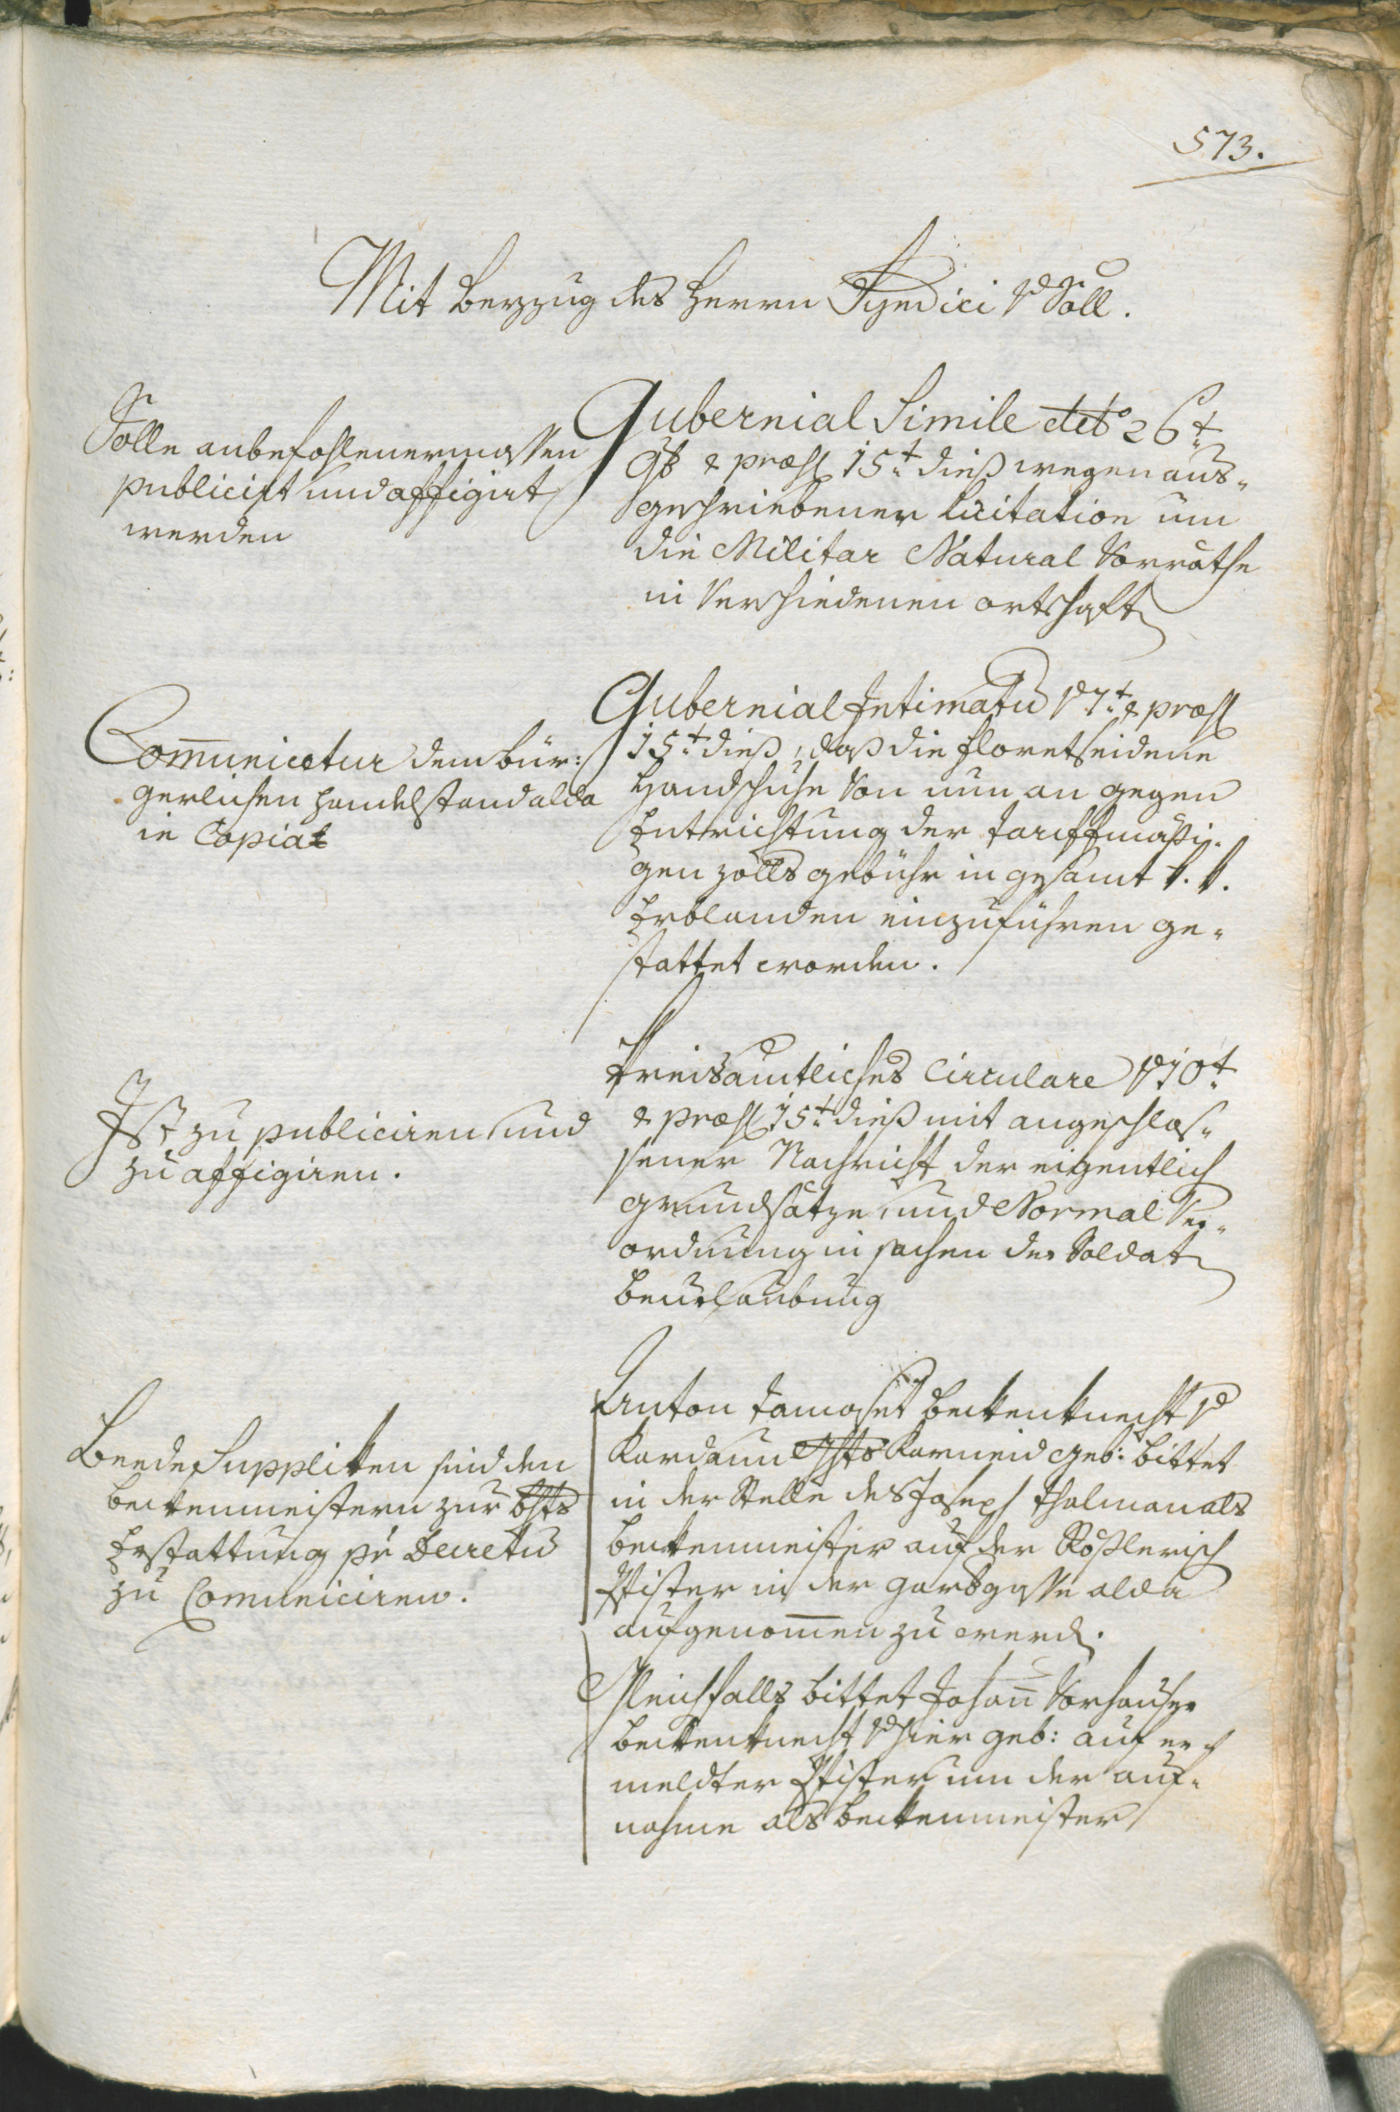 573.
Mit Beyzug des Herrn Syndici v Söll.
Solle anbefohlenermassen
publicirt und affigirt
werden
Gubernial Simile dtto 26t
9b & præs 15t dieß wegen aus-
geschriebener Licitation um
die Militar Natural Vorräthe
in Verschiedenen ortschaft
Communicetur dem bür:
gerlichen Handelstand alda
in Copia
Gubernial Intimatu v 7t & præs
15t dieß, daß die floretseidene
Handschuhe von nun an gegen
Entrichtung der tariffmäßi-
gen zolls gebühr in gesamt k. k.
Erblanden einzuführen ge-
stattet worden.
Ist zu publiciren und
zu affigiren.
Kreisamtliches Circulare v 10t
& præs 15t dieß mit angeschlos-
sener Nachricht der eigentlich
grundsätze und Normal Ver-
ordnung in sachen der Soldat
beurlaubung
Beede Suppliken sind den
beckenmeistern zur
Erstattung pr Decretu
zu Comuniciren.
Anton beckenknecht v
Kardaun Karneid geb: bittet
in der Stelle des Joseph Thalman als
beckenmeister auf der Rößlerisch
Pfister in der garbgasse alda
aufgenommen zu werd.
Gleichfalls bittet Johann Vorhauser
beckenknecht v hier geb: auf er-
meldter Pfister um der auf-
nahme als beckenmeister